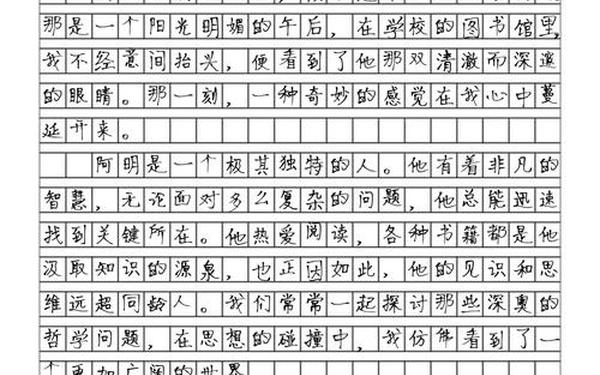 那是一个阳光明媚的午后，在学校的图书馆里，
我不经意间抬头，便看到了他那双清澈而深邃
的眼睛。那一刻，一种奇妙的感觉在我心中蔓
延开来。
阿明是一个极其独特的人。他有着非凡的
智慧，无论面对多么复杂的问题，他总能迅速
找到关键所在。他热爱阅读，各种书籍都是他
汲取知识的源泉，也正因如此，他的见识和思
维远超同龄人。我们常常一起探讨那些深奥的
哲学问题，在思想的碰撞中，我仿佛看到了一
个更加广阔的世界